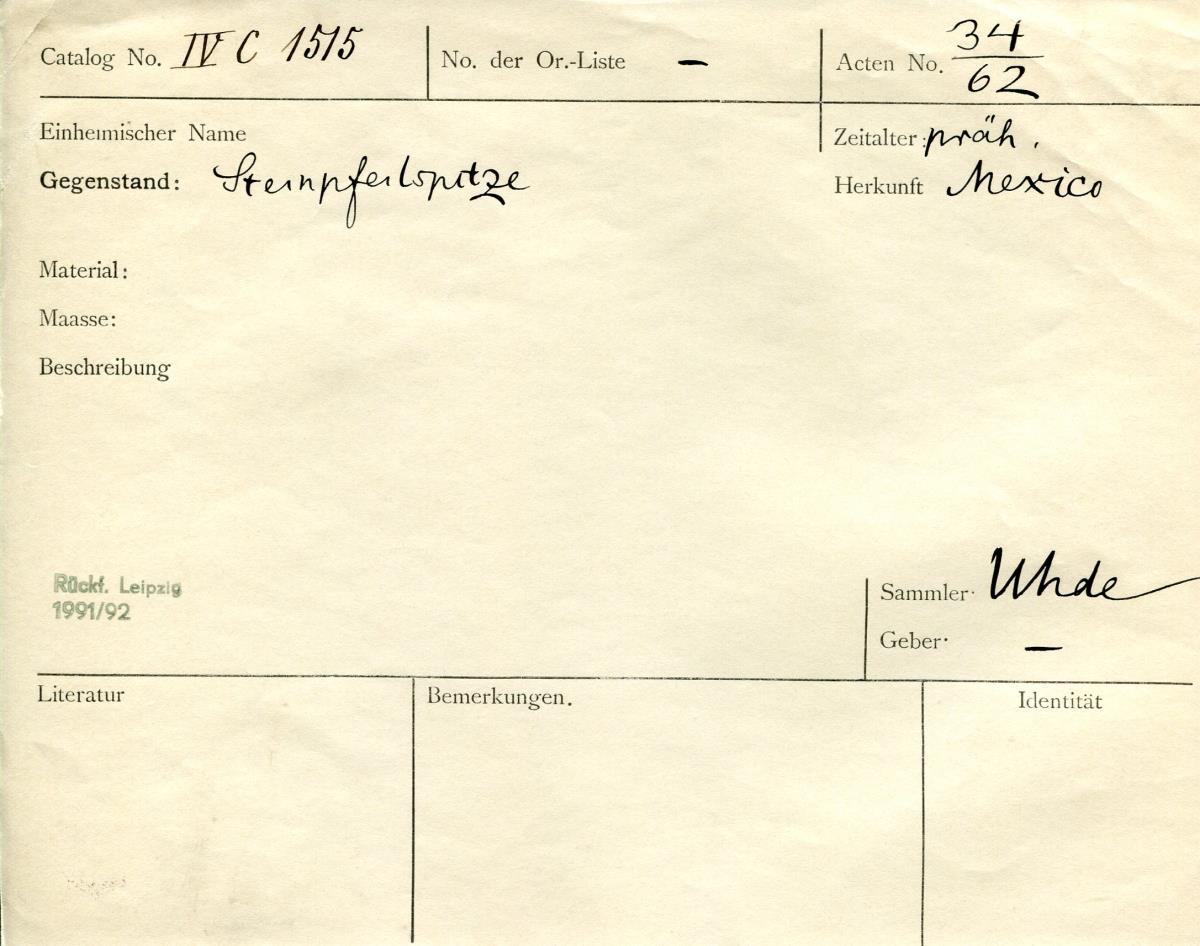 Catalog No. IV C 1515
No. der Or.-Liste –
Acten No. 34/62
Einheimischer Name
Zeitalter: präh.
Gegenstand: Steinpfeilspitze
Herkunft Mexico
Material:
Maasse:
Beschreibung
Rückf. Leipzig
1991/92
Sammler. Uhde
Geber. –
Literatur
Bemerkungen.
Identität